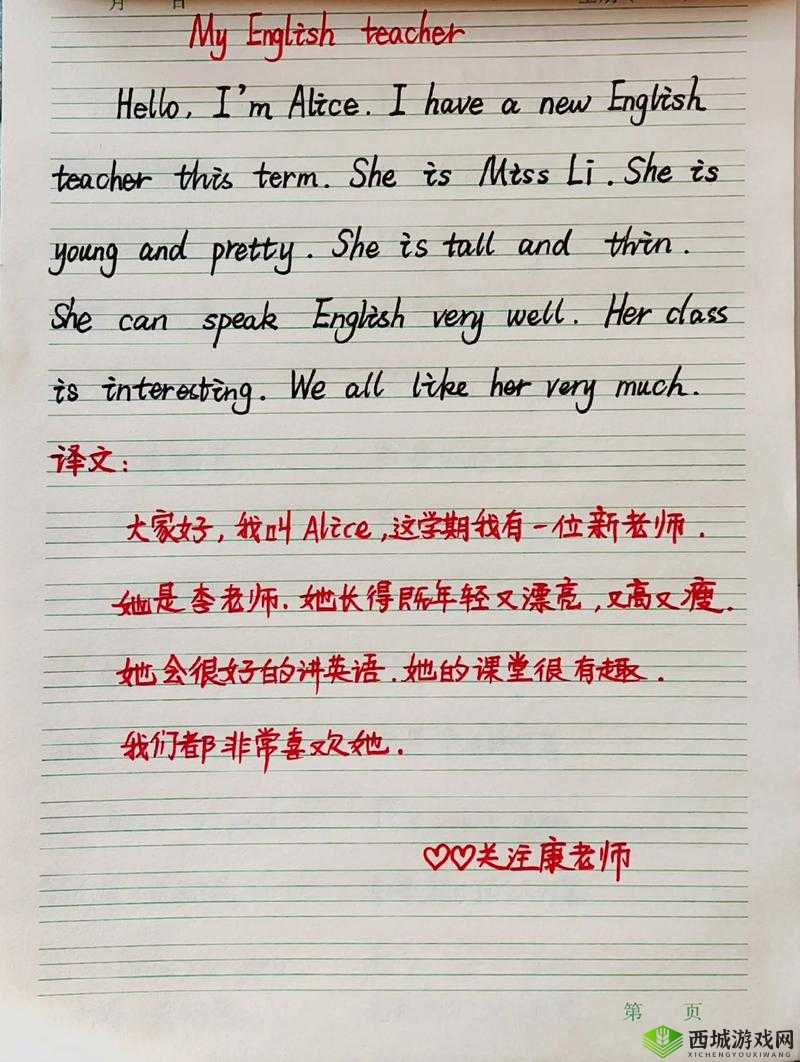 月 日
My English teacher
Hello, I'm Alice. I have a new English
teacher this term. She is Miss Li. She is
young and pretty. She is tall and thin.
She can speak English very well. Her class
is interesting. We all like her very much.
译文:
大家好,我叫Alice,这学期我有一位新老师.
她是李老师.她长得既年轻又漂亮,又高又瘦.
她会很好的讲英语.她的课堂很有趣.
我们都非常喜欢她.
♡♡关注康老师
第 页
西城游戏网
XICHENGYOUXIWANG